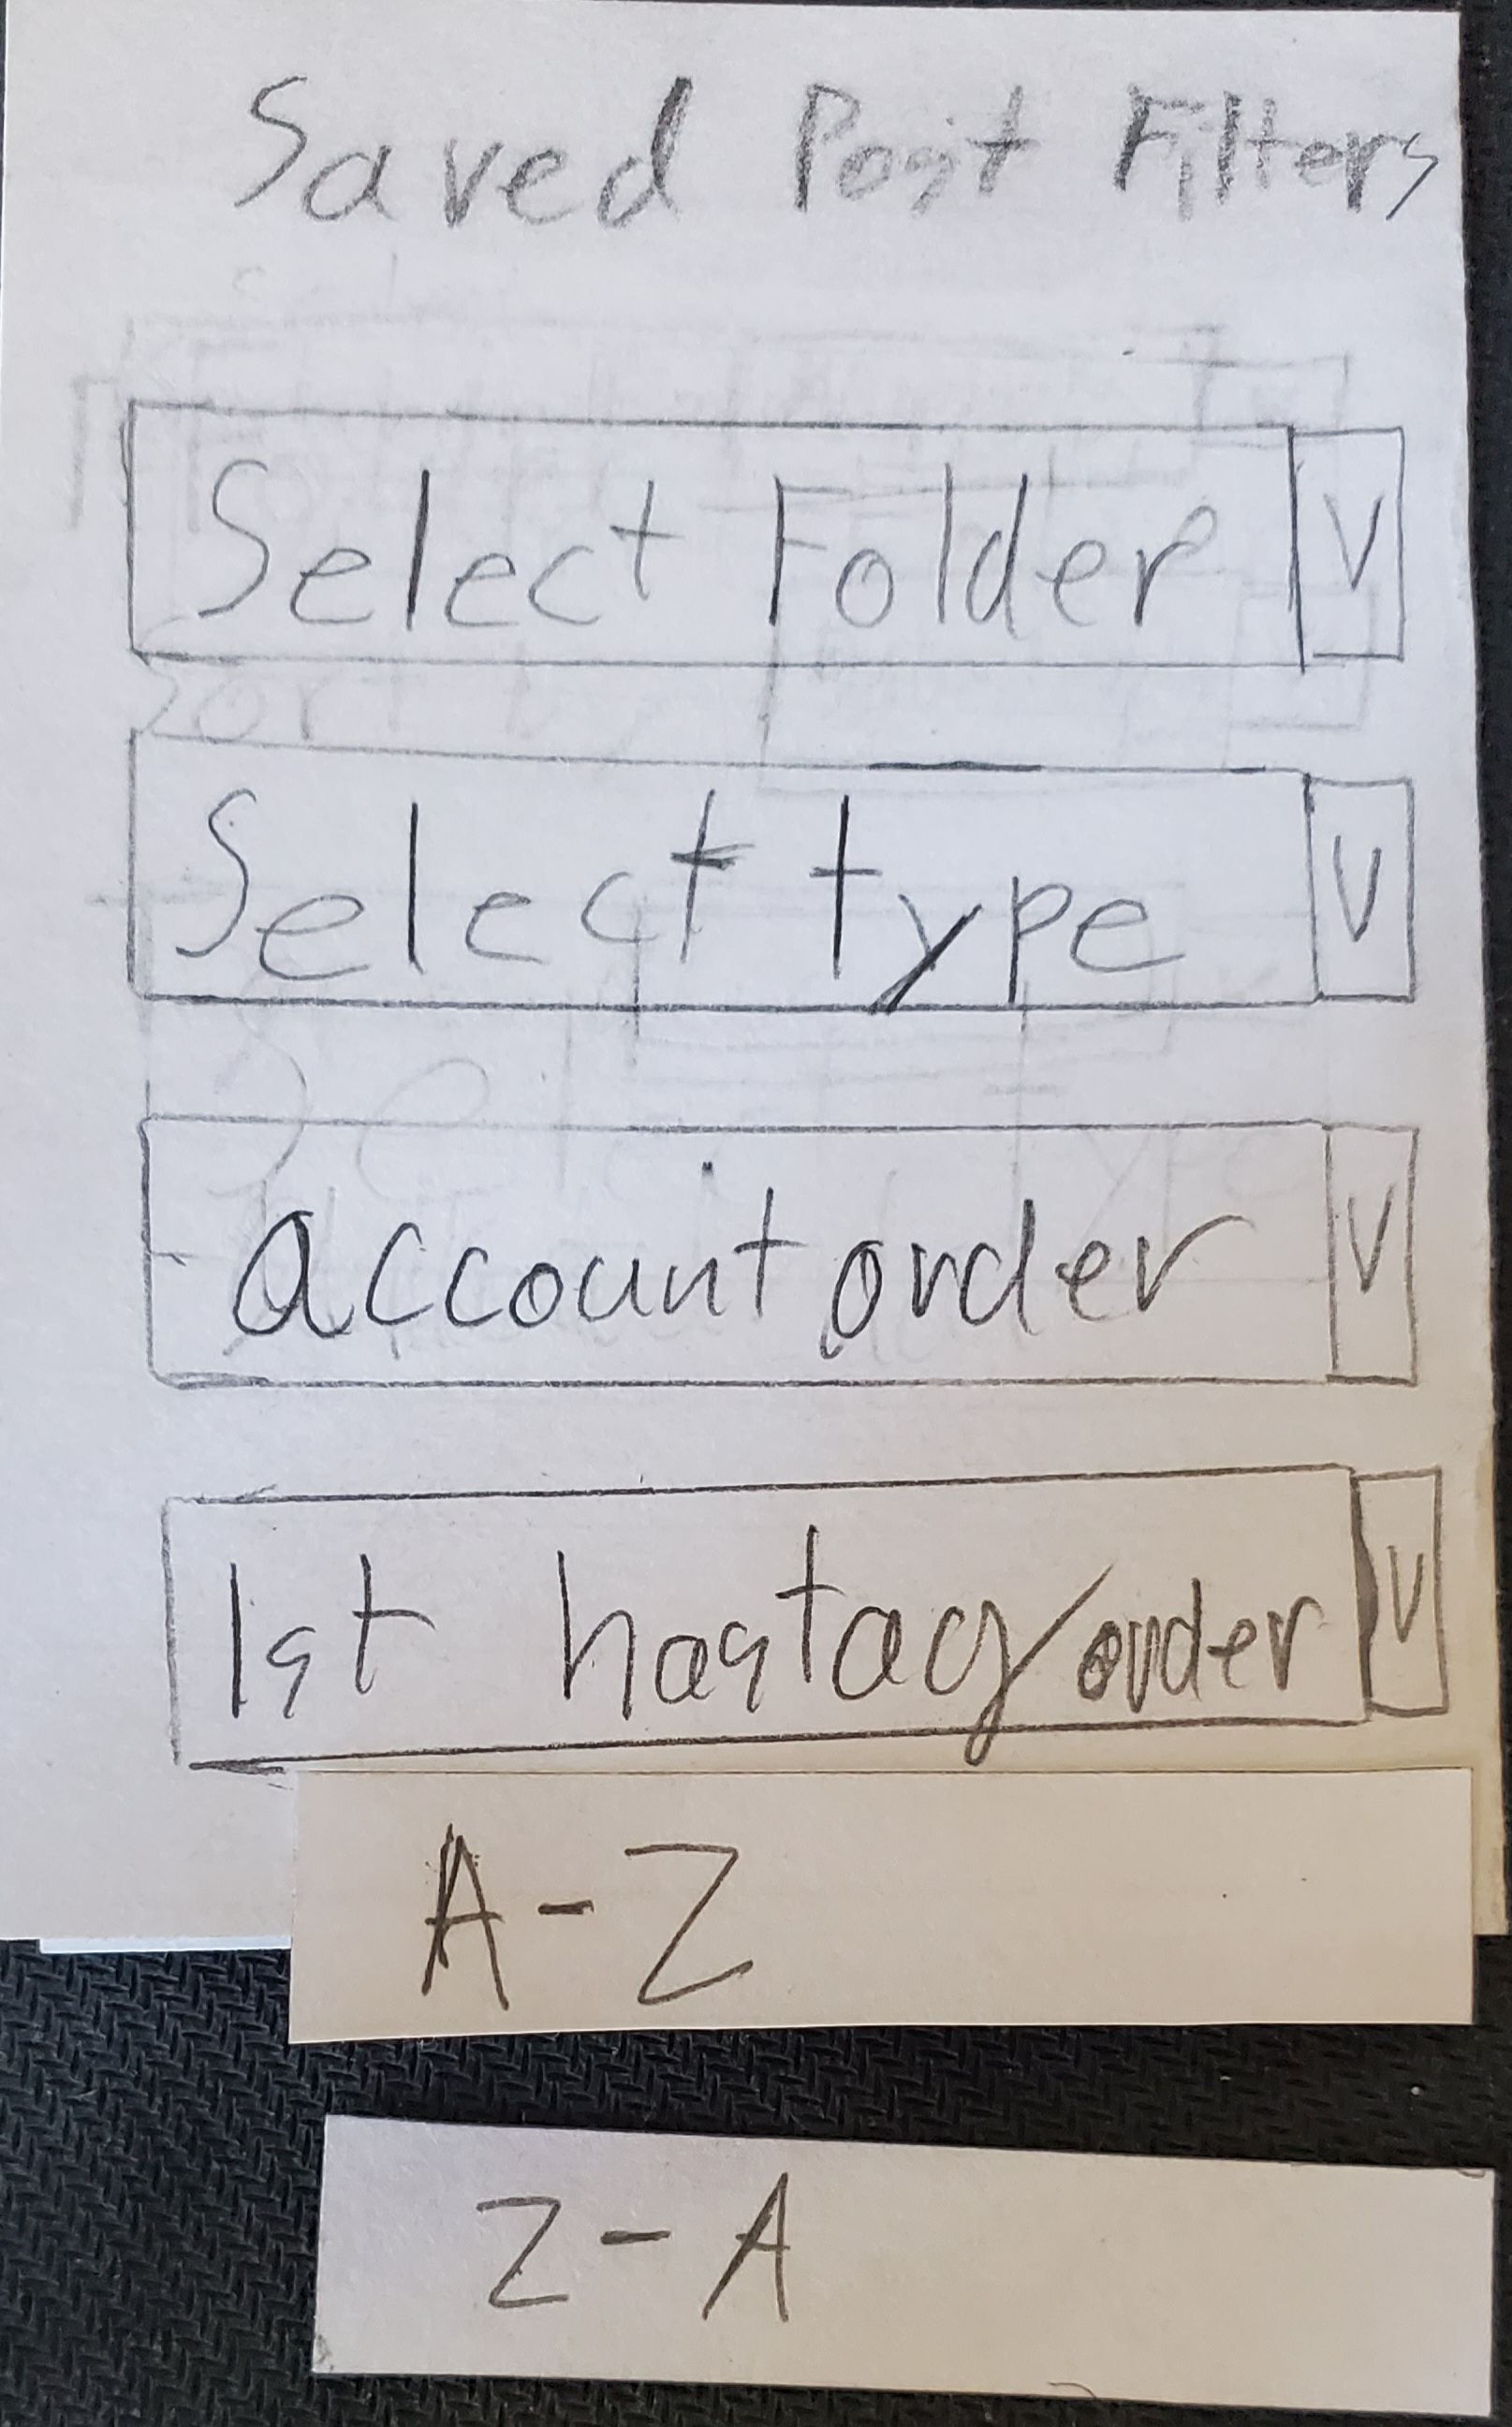 Saved Post Filters
Select Folder V
Sort by
Select type V
Select Type
account order V
1st hastag order V
A-Z
Z-A